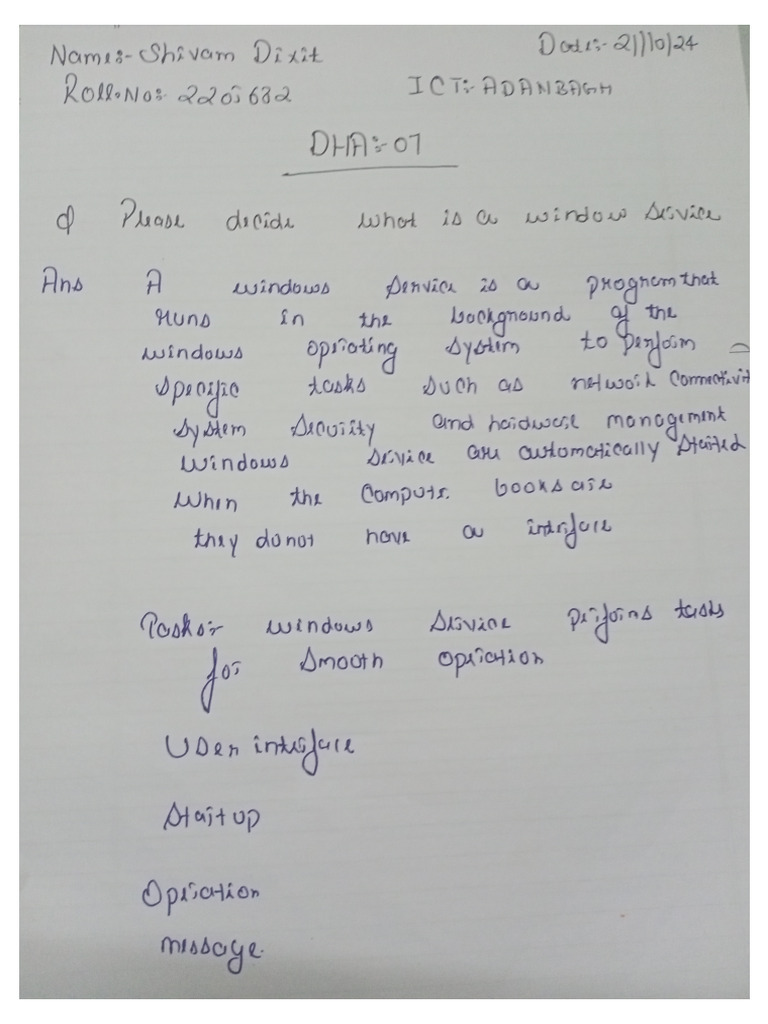 Name:- Shivam Dixit
Date:- 21/10/24
Roll.No:- 2205682
ICT:- ADANBAGH
DHA:- 07
Q Please decide what is a window service
Ans A windows service is a program that
runs in the background of the
windows operating system to perform
specific tasks such as network connectivit
system security and hardware management
windows service are automatically started
when the computer books are
they do not have a interface
Tasks:- windows service perfoms tasks
for smooth opration
User interface
Startup
Opration
message.